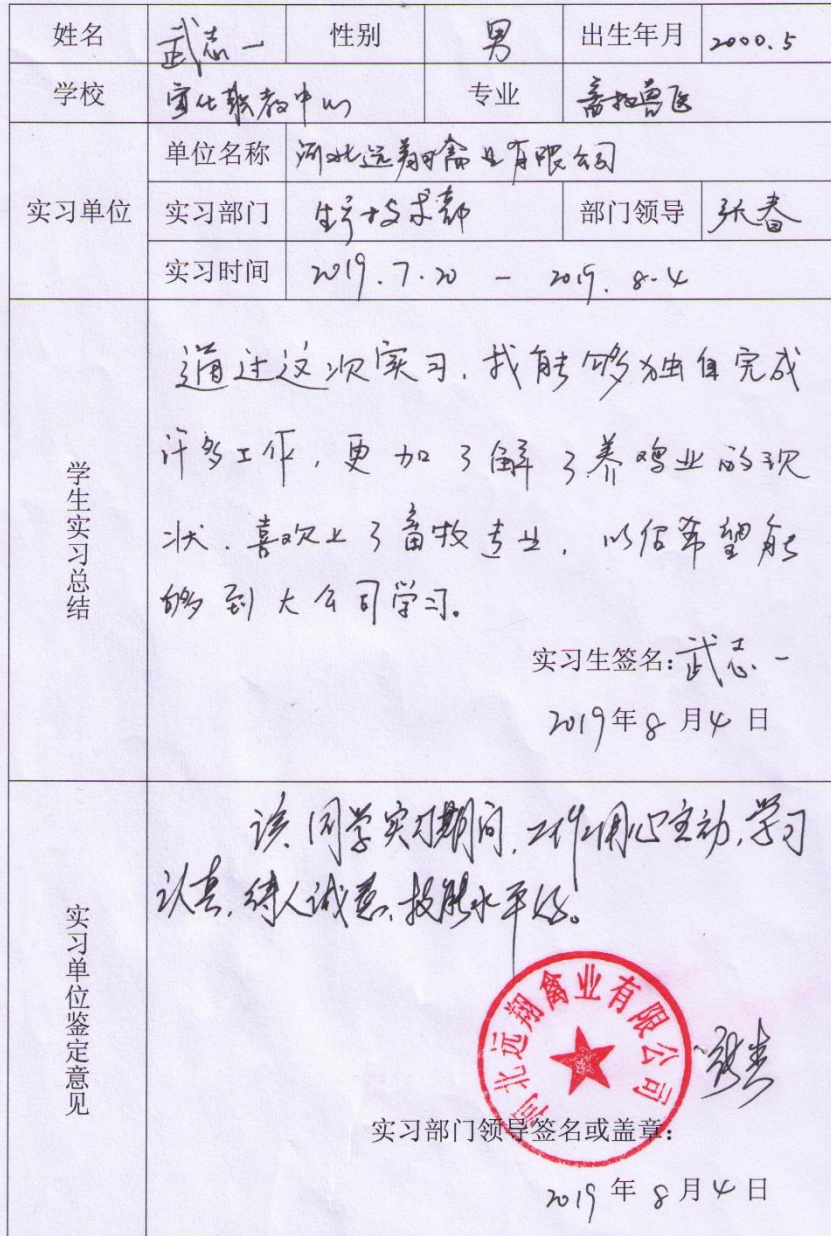 姓名 武志一 性别 男 出生年月 2000.5
学校 宣化职教中心 专业 畜牧兽医
实习单位
单位名称 河北远翔禽业有限公司
实习部门 生产技术部 部门领导 张春
实习时间 2019.7.20 - 2019.8.4
学生实习总结
通过这次实习,我能够独自完成
许多工作,更加了解了养鸡业的现
状.喜欢上了畜牧专业,以后希望能
够到大公司学习。
实习生签名:武志一
2019年8月4日
实习单位鉴定意见
该同学实习期间,工作用心主动,学习
认真,待人诚恳,技能水平好。
河北远翔禽业有限公司
实习部门领导签名或盖章:
2019年8月4日